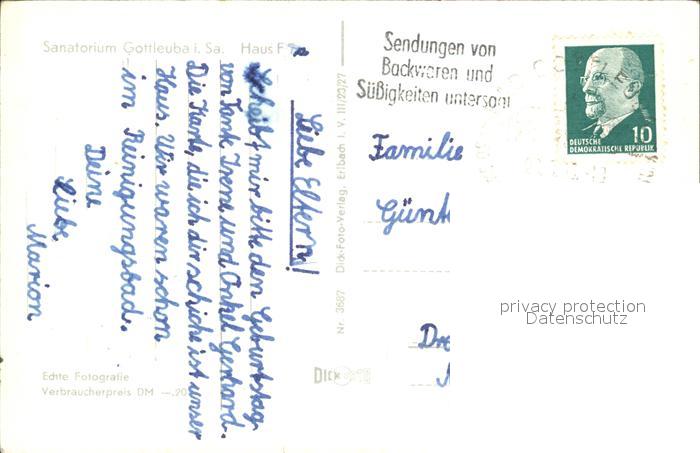 Sanatorium Gottleuba i. Sa. Haus F
Liebe Eltern!
Schreibt mir bitte den Geburtstag
von Tante Irene und Onkel Gerhard.
Die Karte, die ich dir schicke ist unser
Haus. Wir waren schon
im Reinigungsbad.
Deine
liebe
Marion
Echte Fotografie
Verbraucherpreis DM —.20
Nr. 3687 Dick-Foto-Verlag, Erlbach i. V. III/23/27
DICK
Sendungen von
Backwaren und
Süßigkeiten untersagt
DEUTSCHE
DEMOKRATISCHE REPUBLIK
10
Familie
Günt
Dre
privacy protection
Datenschutz